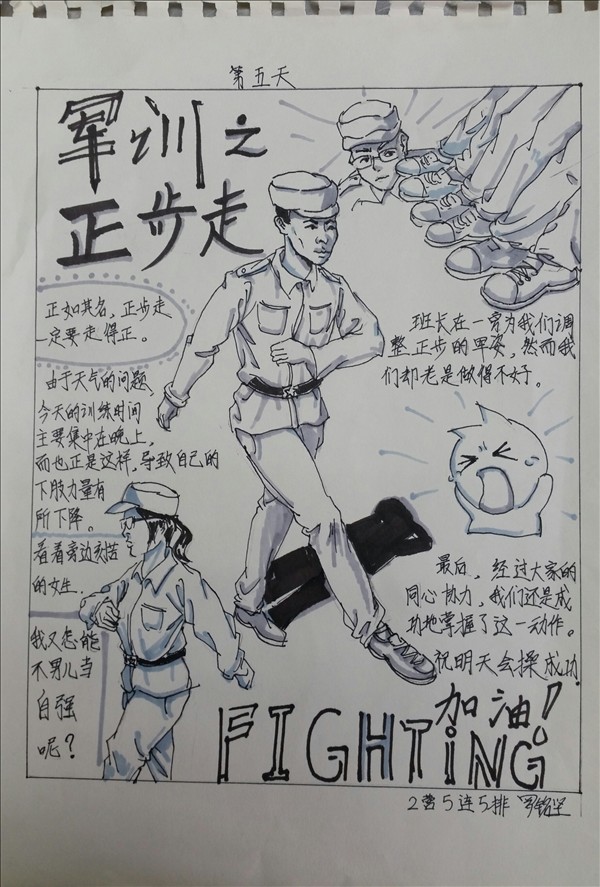 第五天
军训之
正步走
正如其名，正步走
一定要走得正。
由于天气的问题，
今天的训练时间
主要集中在晚上，
而也正是这样，导致自己的
下肢力量有
所下降。
看着旁边刻苦
的女生.
我又怎能
不男儿当
自强
呢？
班长在一旁为我们调
整正步的单姿，然而我
们却老是做得不好。
最后，经过大家的
同心协力，我们还是成
功地掌握了这一动作。
祝明天会操成功.
加油！
FIGHTiNG
2营5连5排